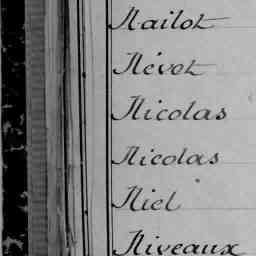 Nailot
Névot
Nicolas
Nicolas
Niel
Niveaux